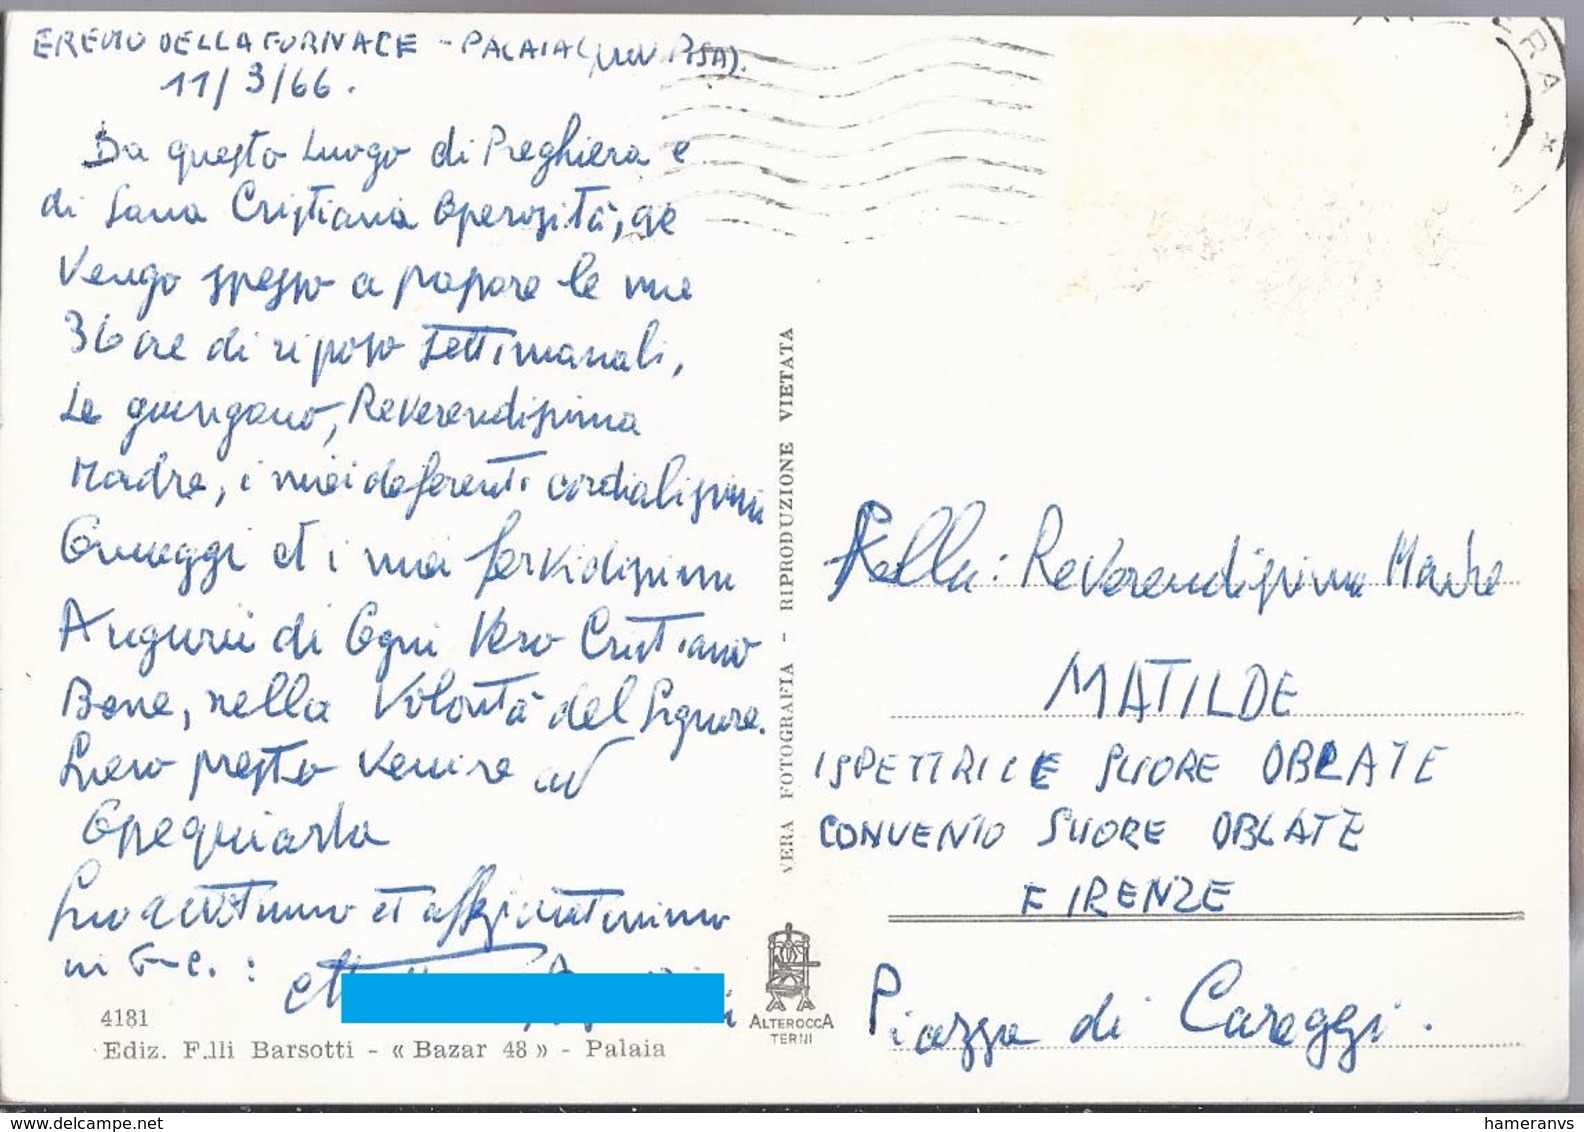 EREMO DELLA FORNACE - PALAIA (prov. PISA).
11/3/66.
Da questo Luogo di Preghiera e
di Sana Cristiana Operosità, ove
Vengo spesso a passare le mie
36 ore di riposo settimanali,
Le giungano, Reverendissima
Madre, i miei deferenti cordialissimi
Omaggi et i miei fervidissimi
Augurii di Ogni Vero Cristiano
Bene, nella Volontà del Signore.
Spero presto venire ad
Ossequiarla
Suo devotissimo et affezionatissimo
in G.C. :
4181
Ediz. F.lli Barsotti - « Bazar 48 » - Palaia
VERA FOTOGRAFIA - RIPRODUZIONE VIETATA
ALTEROCCA
TERNI
Alla: Reverendissima Madre
MATILDE
ISPETTRICE SUORE OBLATE
CONVENTO SUORE OBLATE
FIRENZE
Piazza di Careggi.
delcampe.net
hameranvs